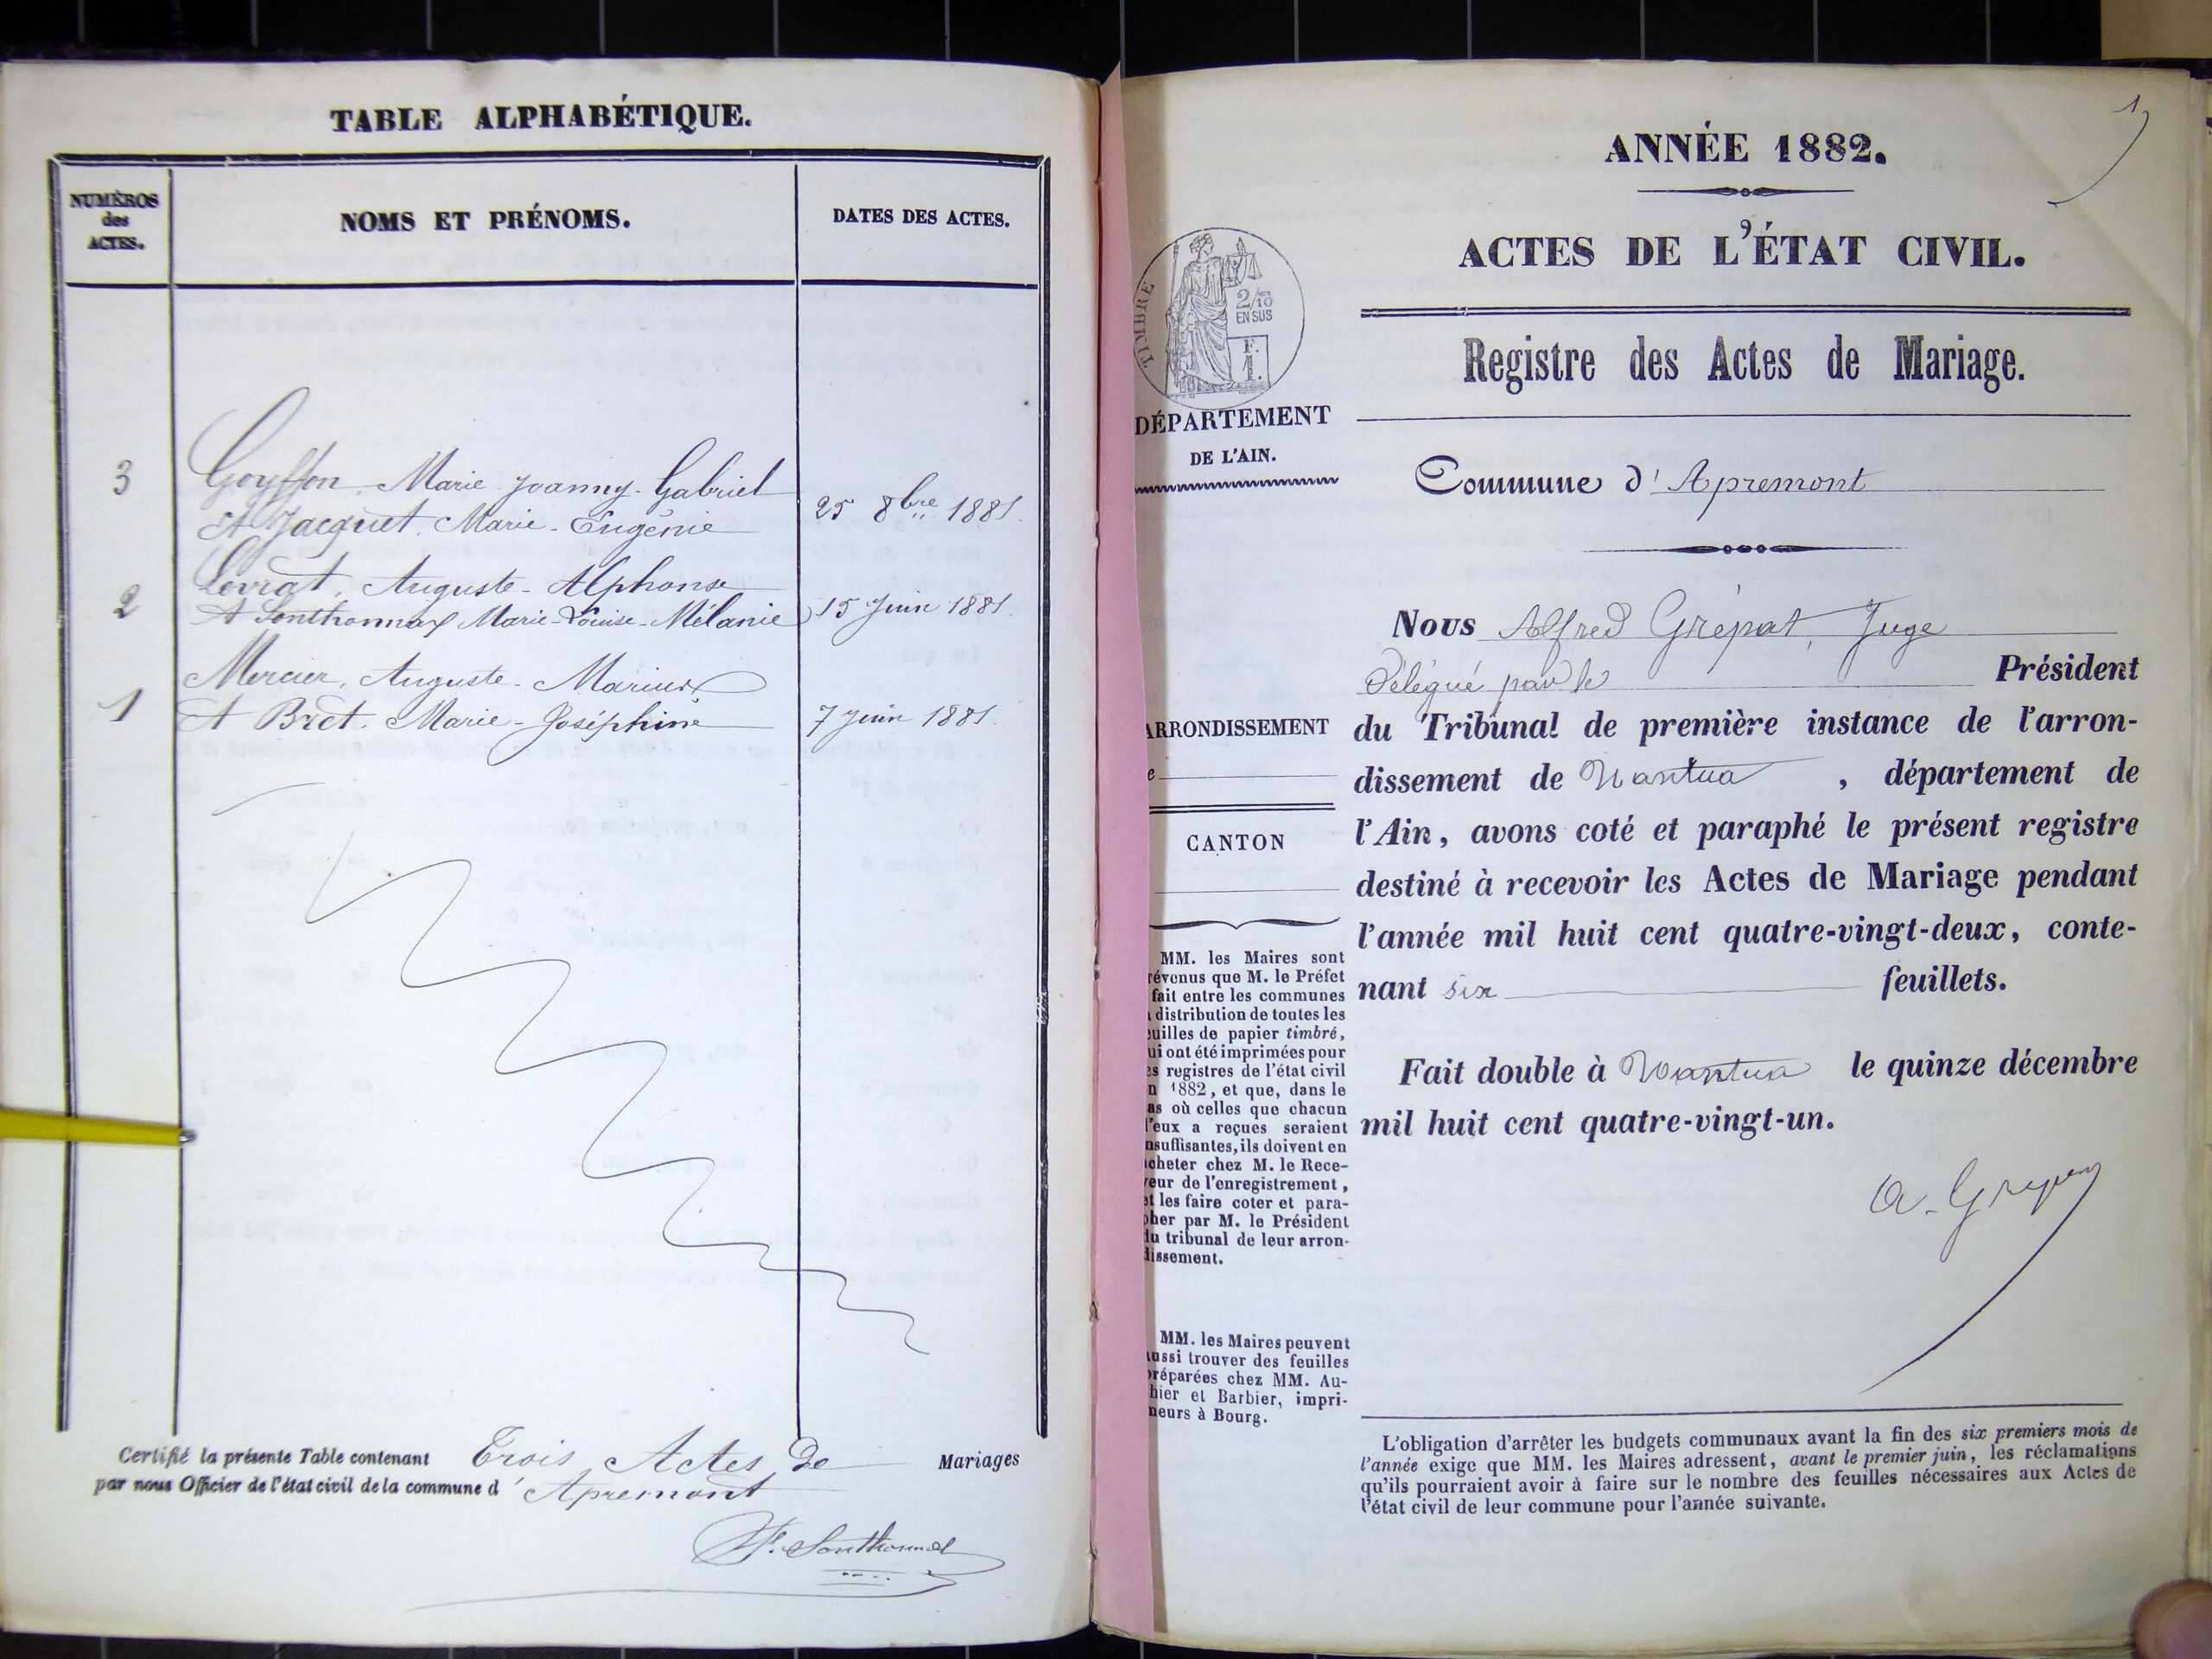 TABLE ALPHABÉTIQUE.
NUMÉROS
des
ACTES.
NOMS ET PRÉNOMS.
DATES DES ACTES.
3
Goyffon, Marie Joanny-Gabriel
Et Jacquet, Marie-Eugénie
25 8bre 1881.
2
Levrat, Auguste-Alphonse
Et Sonthonnax Marie-Louise-Mélanie
15 Juin 1881.
1
Mercier, Auguste-Marius
Et Bret, Marie-Joséphine
7 Juin 1881.
Certifié la présente Table contenant Trois Actes de Mariages
par nous Officier de l'état civil de la commune d'Apremont
1
ANNÉE 1882.
ACTES DE L'ÉTAT CIVIL.
TIMBRE
2/10
EN SUS
F.
1.
Registre des Actes de Mariage.
DÉPARTEMENT
DE L'AIN.
Commune d'Apremont
Nous Alfred Grépat, Juge
Délégué par le Président
ARRONDISSEMENT
e
CANTON
du Tribunal de première instance de l'arron-
dissement de Nantua, département de
l'Ain, avons coté et paraphé le présent registre
destiné à recevoir les Actes de Mariage pendant
l'année mil huit cent quatre-vingt-deux, conte-
nant six feuillets.
Fait double à Nantua le quinze décembre
mil huit cent quatre-vingt-un.
MM. les Maires sont
révenus que M. le Préfet
fait entre les communes
distribution de toutes les
euilles de papier timbré,
ui ont été imprimées pour
es registres de l'état civil
n 1882, et que, dans le
as où celles que chacun
'eux a reçues seraient
nsuffisantes, ils doivent en
cheter chez M. le Rece-
eur de l'enregistrement,
et les faire coter et para-
pher par M. le Président
du tribunal de leur arron-
dissement.
MM. les Maires peuvent
aussi trouver des feuilles
préparées chez MM. Au-
hier et Barbier, impri-
meurs à Bourg.
L'obligation d'arrêter les budgets communaux avant la fin des six premiers mois de
l'année exige que MM. les Maires adressent, avant le premier juin, les réclamations
qu'ils pourraient avoir à faire sur le nombre des feuilles nécessaires aux Actes de
l'état civil de leur commune pour l'année suivante.